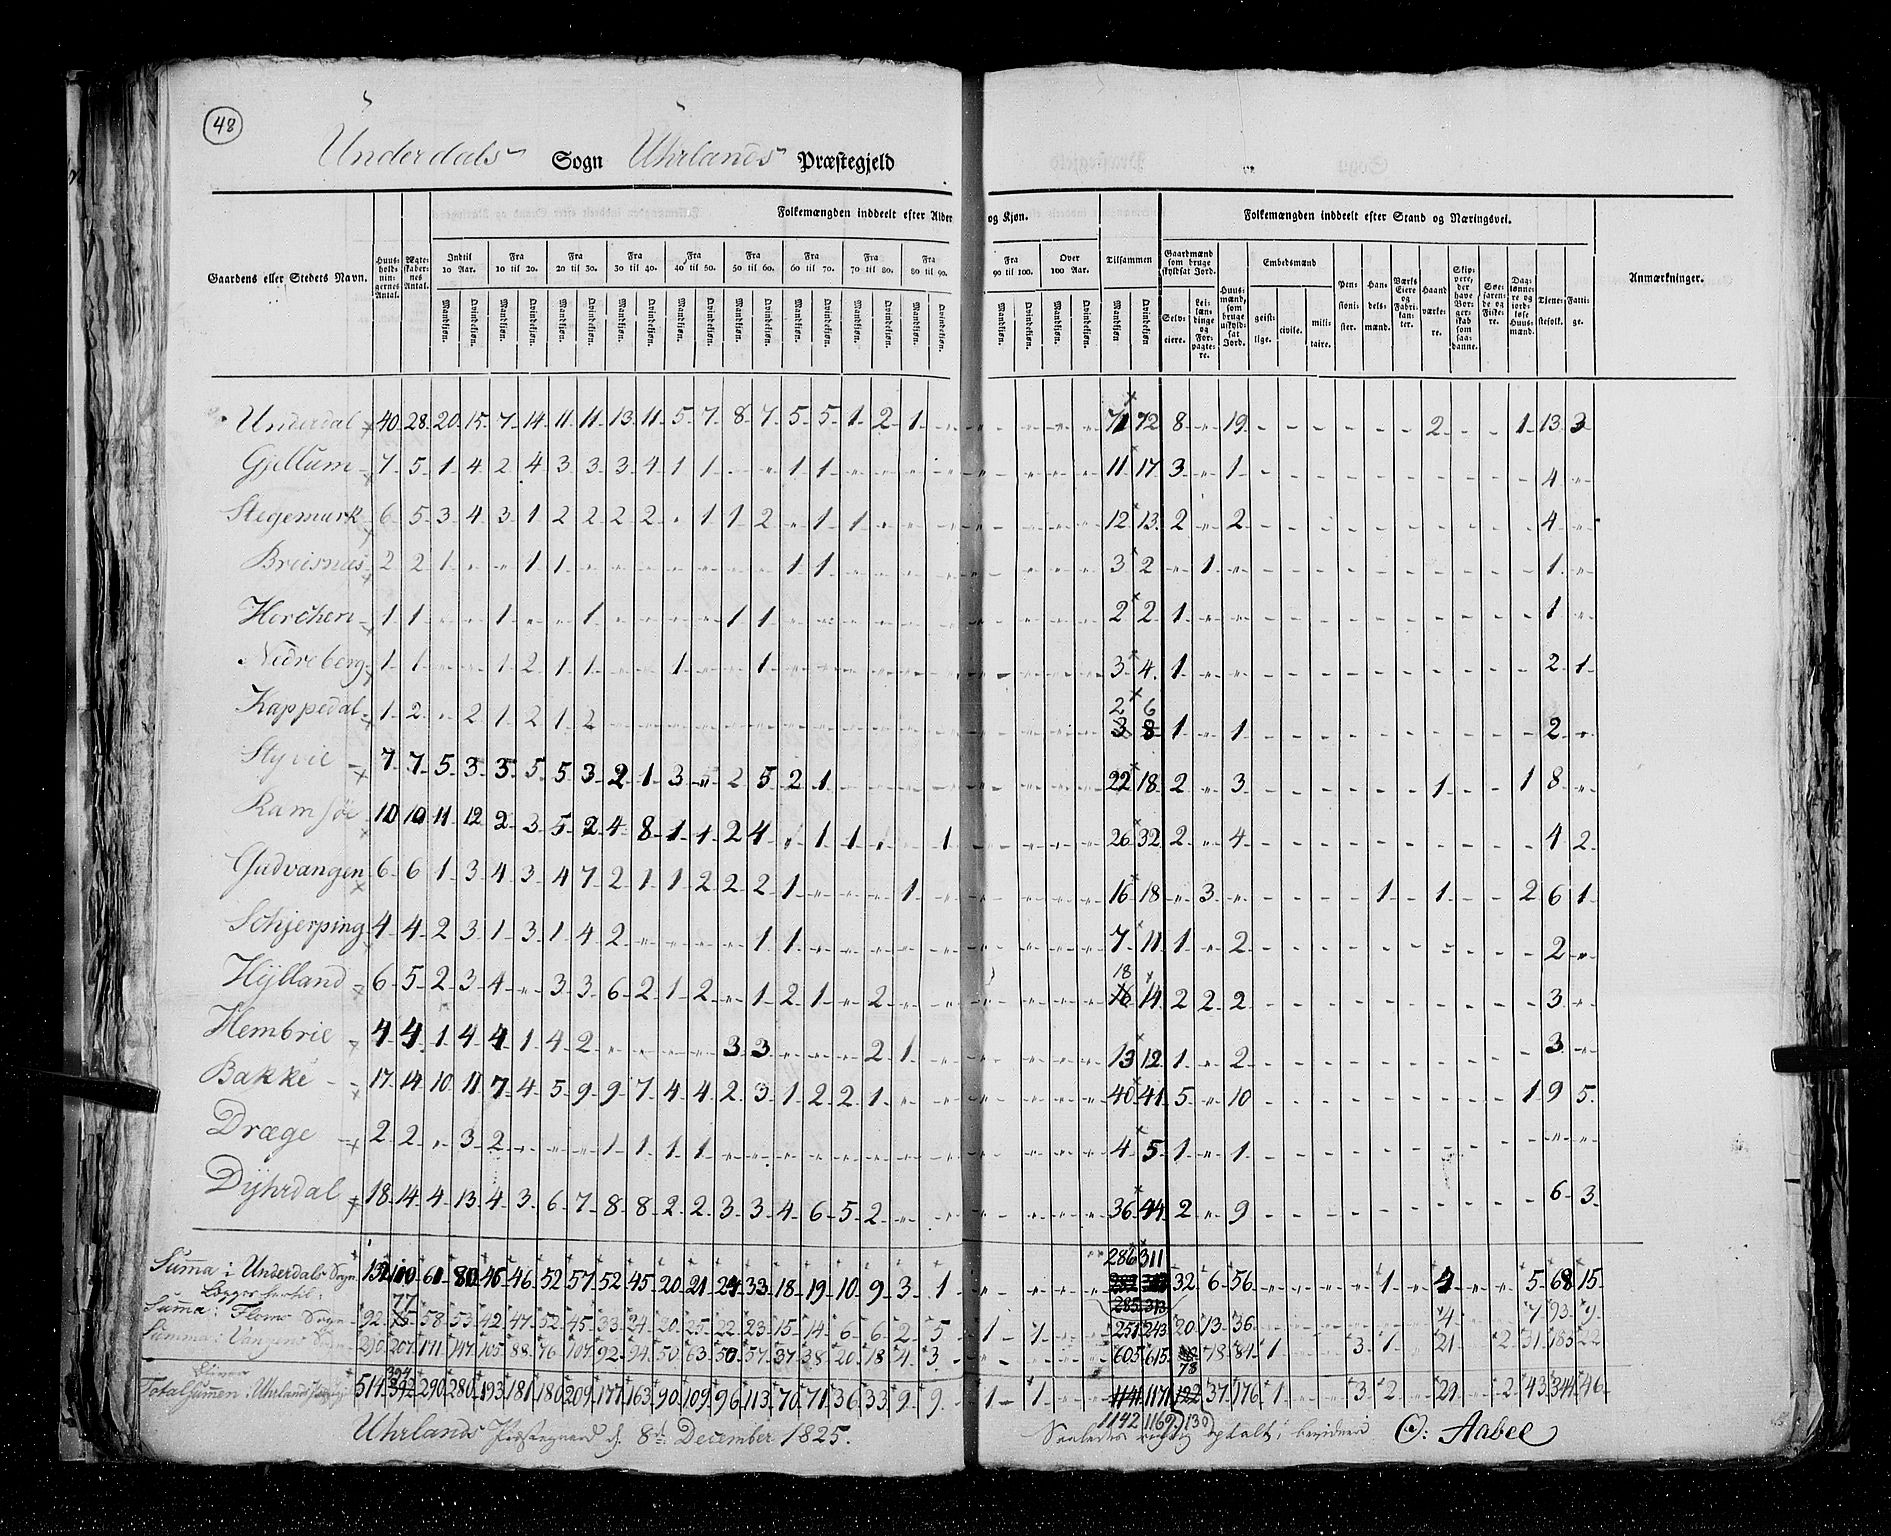 48
Underdals Sogn Uhrlands Præstegjeld
Gaardens eller Stedets Navn. Huusholdningernes Antal. Ægteskabernes Antal. Folkemængden inddeelt efter Alder og Kjøn. Tilsammen Folkemængden inddeelt efter Stand og Næringsvei. Anmærkninger.
Indtil 10 Aar. Fra 10 til 20. Fra 20 til 30. Fra 30 til 40. Fra 40 til 50. Fra 50 til 60. Fra 60 til 70. Fra 70 til 80. Fra 80 til 90. Fra 90 til 100. Over 100 Aar.
Gaardmænd som bruge skyldsat Jord. Huusmænd, som bruge uskyldsat Jord. Embedsmænd Pensionister. Handelsmænd. Værks Eiere og Fabrikanter. Haandværkere. Skippere, der have Borgerskab som saadanne. Søefarende og Fiskere. Daglønnere og jordløse Huusmænd. Tjenestefolk. Fattige.
Mandkjøn. Qvindekjøn. Mandkjøn. Qvindekjøn. Mandkjøn. Qvindekjøn. Mandkjøn. Qvindekjøn. Mandkjøn. Qvindekjøn. Mandkjøn. Qvindekjøn. Mandkjøn. Qvindekjøn. Mandkjøn. Qvindekjøn. Mandkjøn. Qvindekjøn. Mandkjøn. Qvindekjøn. Mandkjøn. Qvindekjøn. Mandkjøn Qvindekjøn. Selveiere. Leilændinge og Forpagtere. geistlige. civile. militaire.
Underdal 40 28 20 15 7 14 11 11 13 11 5 7 8 7 5 5 1 2 1 71 72 8 19 2 1 13 3
Gjellum 7 5 1 4 2 4 3 3 3 4 1 1 1 1 11 17 3 1 4
Stegemurk 6 5 3 4 3 1 2 2 2 2 1 1 2 1 1 12 13 2 2 4
Breisnæs 2 2 1 1 1 1 1 3 2 1 1
Horchen 1 1 1 1 1 1 2 2 1 1
Nedreberg 1 1 1 2 1 1 1 1 3 4 1 2 1
2 6
Kappedal 1 2 2 1 2 1 2 3 8 1 1 2
Styvie 7 7 5 3 3 5 5 3 2 1 3 2 5 2 1 22 18 2 3 1 1 8
Ramsøe 10 10 11 12 2 3 5 2 4 8 1 1 2 4 1 1 1 26 32 2 4 4 2
Gudvangen 6 6 1 3 4 3 4 7 2 1 1 2 2 2 1 1 16 18 3 1 1 2 6 1
Schjerping 4 4 2 3 1 3 1 4 2 1 1 7 11 1 2 2
18
Hylland 6 5 2 3 4 3 3 6 2 1 2 1 2 1 2 16 14 2 2 2 3
Hembrie 4 4 1 4 4 1 4 2 3 3 2 1 13 12 1 2 3
Bakke 17 14 10 11 7 4 5 9 9 7 4 4 2 3 1 2 2 1 40 41 5 10 1 9 5
Dræge 2 2 3 2 1 1 1 1 4 5 1 1
Dyhrdal 18 14 4 13 4 3 6 7 8 8 2 2 3 3 4 6 5 2 36 44 2 9 6 3
286 311
Summa i Underdals Sogn 132 110 61 80 45 46 52 57 52 45 20 21 24 33 18 19 10 9 3 1 32 6 56 1 4 5 68 15
77 285 313
Summa: Floms Sogn 92 75 58 53 42 47 52 45 33 24 20 25 22 23 15 14 6 6 2 5 1 1 251 243 20 13 36 4 7 93 9
Summa: Vangens Sogn 290 207 171 147 105 88 76 107 92 94 50 63 50 57 37 38 20 18 4 3 605 615 78 18 84 1 3 1 21 2 31 183 22
394 78
Totalsummen: Uhrlands 514 392 290 280 193 181 180 209 177 163 90 109 96 113 70 71 36 33 9 9 1 1 1141 1171 122 37 176 1 3 2 29 2 43 344 46
1142 1169 130
Uhrlands Præstegaard d. 8de December 1825.
Saaledes rigtig optalt, bevidner O: Aabel